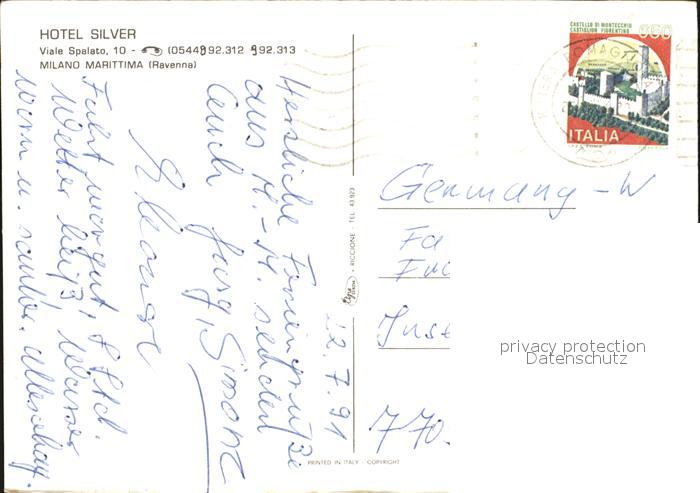 HOTEL SILVER
Viale Spalato, 10 - (0544) 992.312 992.313
MILANO MARITTIMA (Ravenna)
CASTELLO DI MONTECCHIO
CASTIGLION FIORENTINO
650
ITALIA
22.7.91
Herzliche Feriengrüße
aus M.-M. senden
Euch Jürg, Simone
Eleonore
Fahrt war gut, 8 Std.
Wetter heiß, Wasser
warm u. sauber.
Germany - W
Fa
Inse
770
RICCIONE - TEL. 43.923
PRINTED IN ITALY - COPYRIGHT
privacy protection
Datenschutz